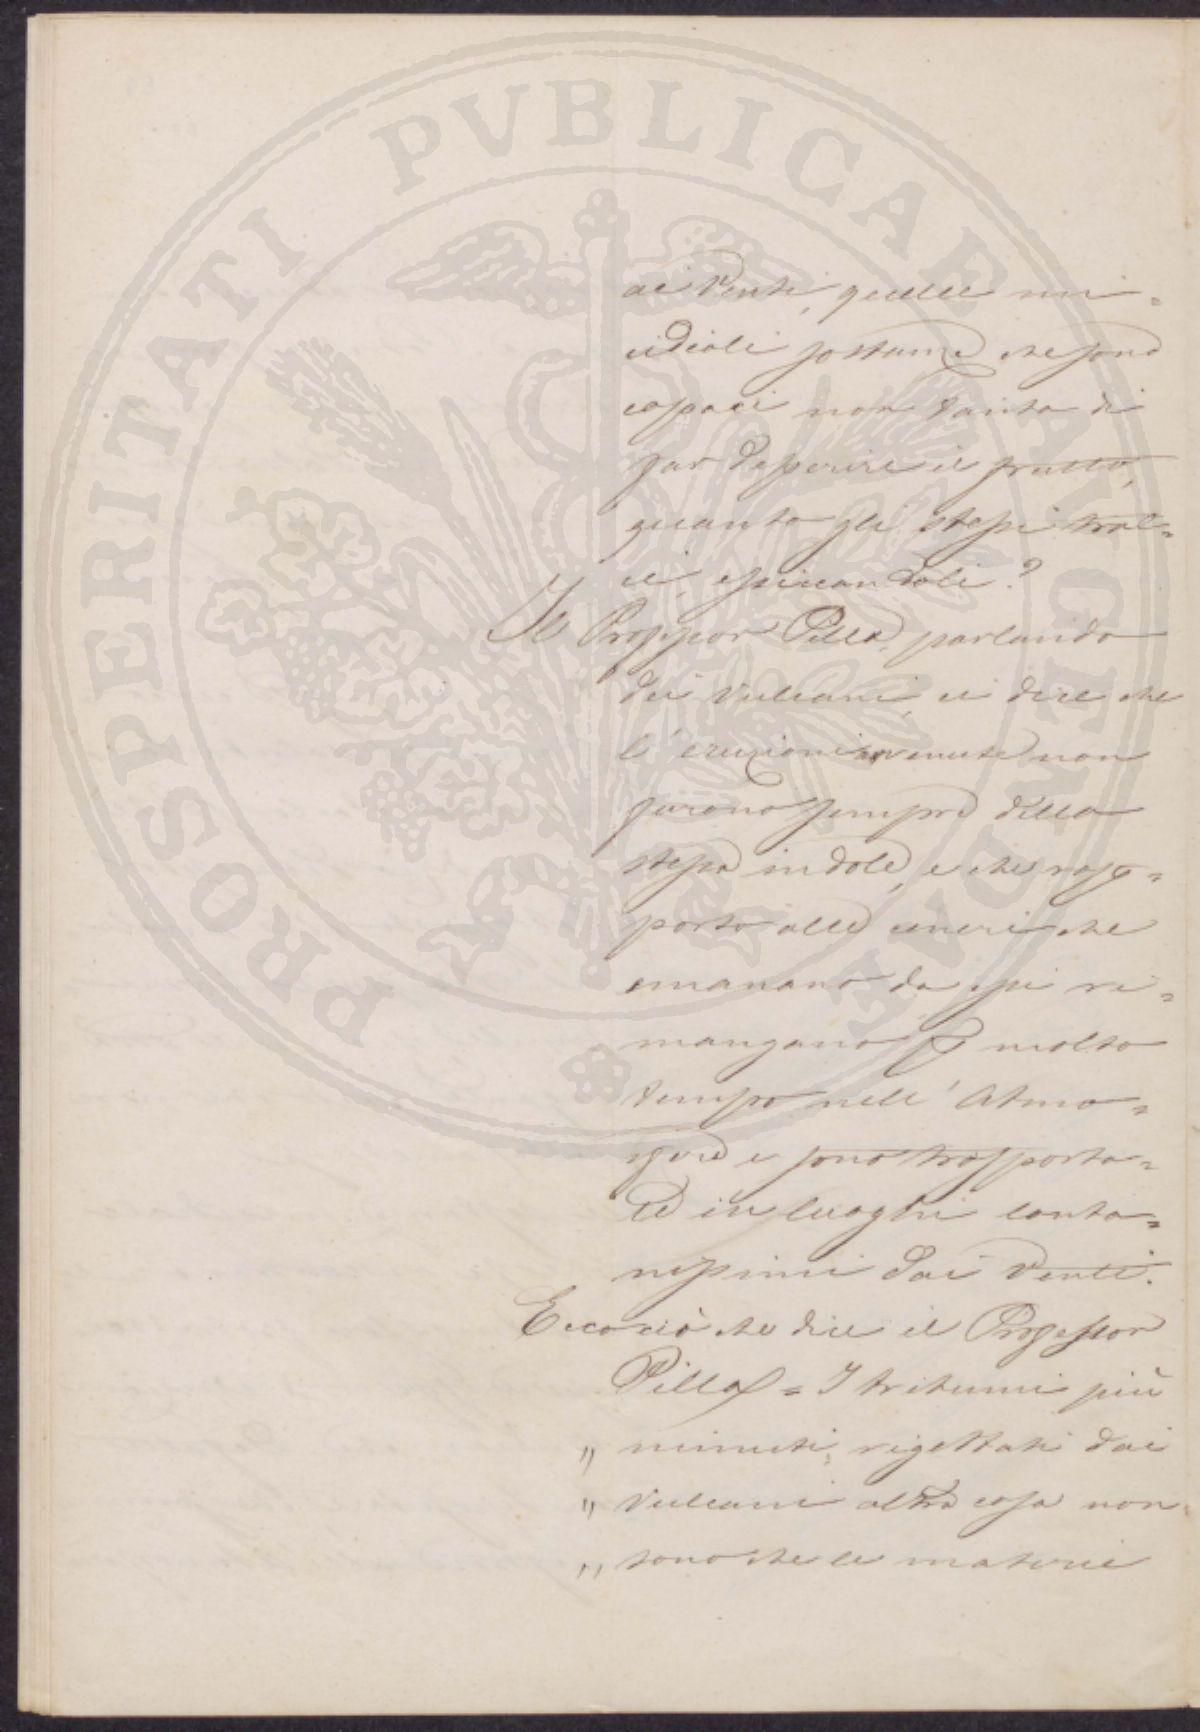 PROSPERITATI PVBLICAE AVGENDAE
ai Venti, quelle mi=
cidiali sostanze che sono
capaci non tanto di
far deperire il frutto,
quanto gli stessi tral=
ci, essiccandoli?
Il Professor Pilla, parlando
dei Vulcani, ci dice che
l'eruzioni avvenute non
furono sempre della
stessa indole, e che rap=
porto alle ceneri che
emanano da essi ri=
mangano p molto
tempo nell'Atmo=
sfera e sono trasporta=
te in luoghi lonta=
nissimi dai Venti.
Ecco ciò che dice il Professor
Pilla = I tritumi più
„ minuti, rigettati dai
„ Vulcani altra cosa non
„ sono che le materie